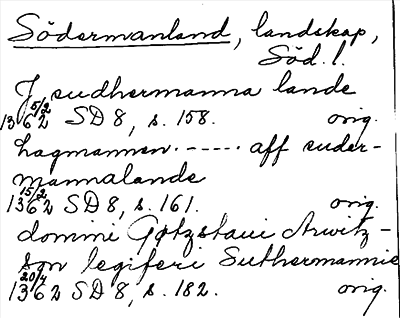 Södermanland, landskap,
Söd. l.
J sudhermanna lande
15/2 1362 SD 8, s. 158. orig.
Lagmannen ----- aff suder-
mannalande
15/2 1362 SD 8, s. 161. orig.
domini Gøtzstaui Arwitz-
son legiferi Suthermannie
20/4 1362 SD 8, s. 182. orig.